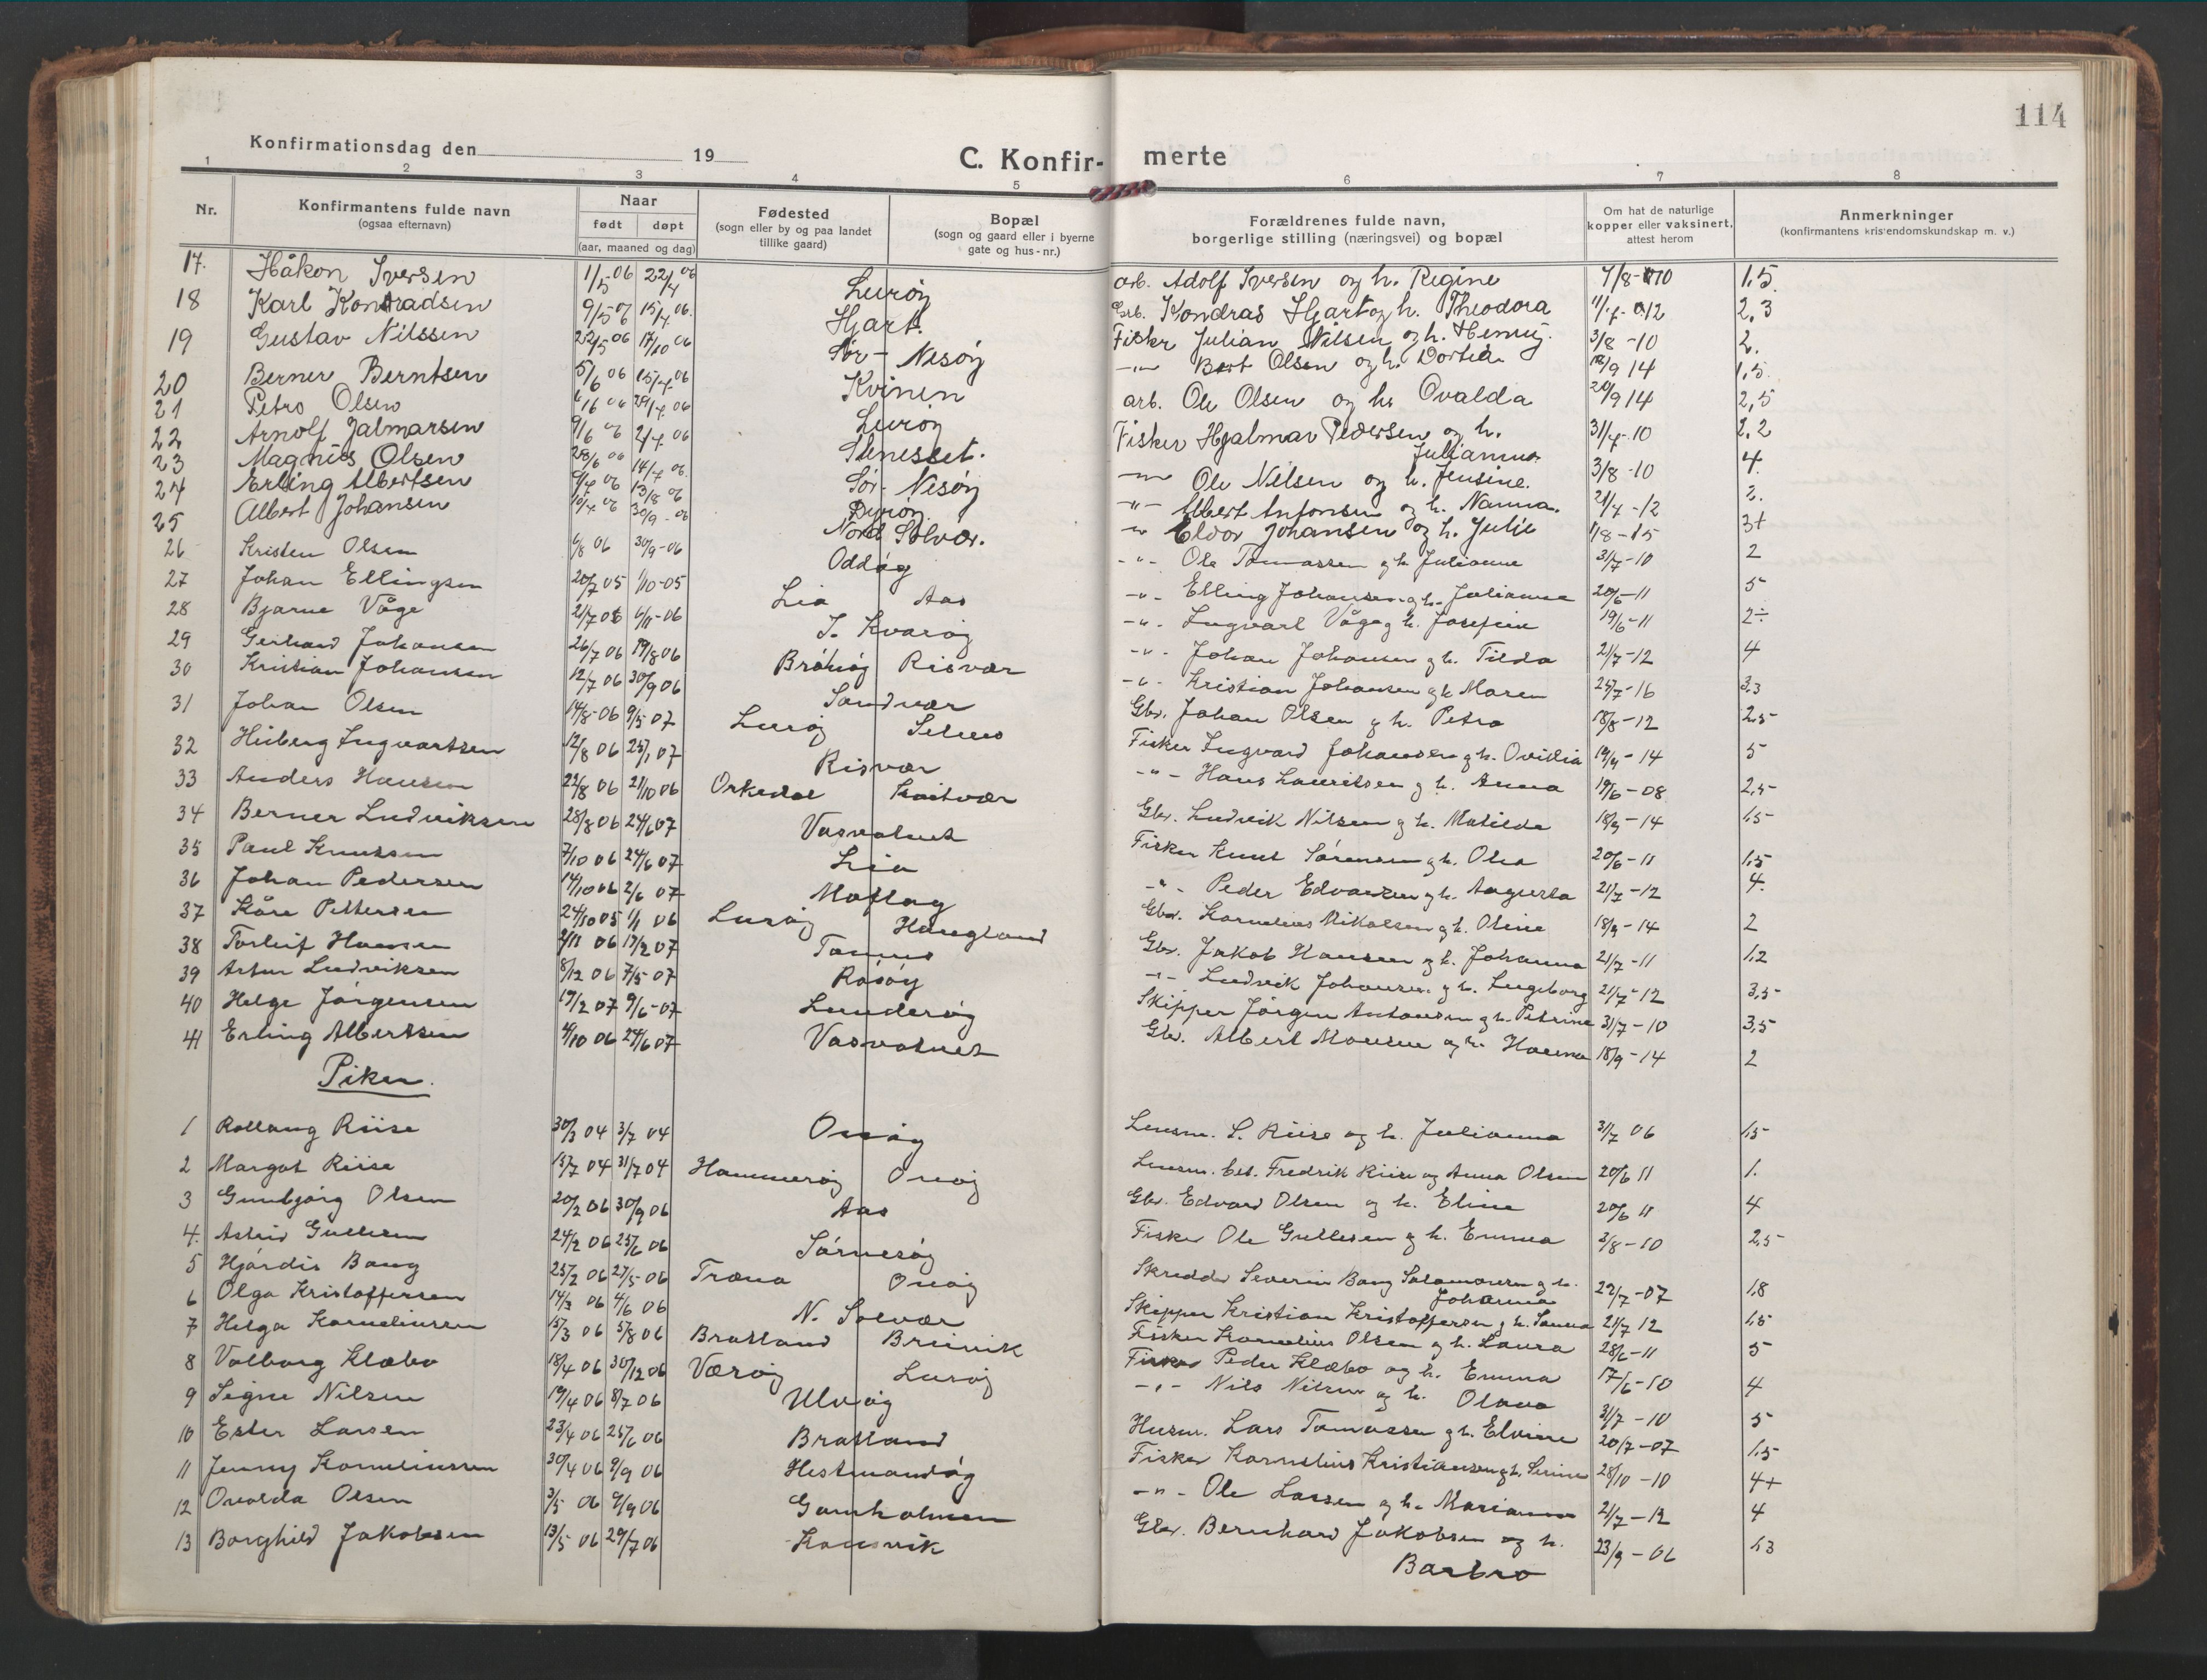 114
Konfirmationsdag den 19
C. Konfirmerte
1 2 3 4 5 6 7 8
Nr. Konfirmantens fulde navn (ogsaa efternavn) Naar født døpt (aar, maaned og dag) Fødested (sogn eller by og paa landet tillike gaard) Bopæl (sogn og gaard eller i byerne gate og hus-nr.) Forældrenes fulde navn, borgerlige stilling (næringsvei) og bopæl Om hat de naturlige kopper eller vaksinert, attest herom Anmerkninger (konfirmantens kristendomskundskap m. v.)
17. Håkon Iversen 1/5 06 22/4 06 Lurøy arb. Adolf Iversen og h. Regine 7/8-10 1,5.
18 Karl Konradsen 9/5 06 15/7 06. Hjart. Kondras Hjart og h. Theodora 2,3
19 Gustav Nilssen 06 17/10 06 Sør-Nesøy Fisker Julian Nilsen og h. 3/8-10 2.
20 Berner Berntsen 5/6 06 15/7 06 Kvinen -"- Olsen og h. Dortea 18/9 14 1,5.
21 Petro Olsen 6/6 06 29/7 06 Lurøy arb. Ole Olsen og h. Ovalda 20/9 14 2,5
22 Arnolf Jalmarsen 9/6 06 2/7 06 Stenesset. Fisker Hjalmar Pedersen og h. Julianna 31/7-10 2,2
23 Magnus Olsen 28/6 06 14/7 06. Sør-Nesøy -"- Ole Nilsen og h. Jensine. 3/8-10 4.
24 Erling Albertsen 06 13/8 06 -"- Albert Antonsen og h. Nanna. 21/7-12 2.
25 Albert Johansen 10/7 06 30/9-06 Nord Solvær. -"- Eldor Johansen og h. Julie 1/8-15 3+
26 Kristen Olsen 6/8 06 30/9-06 Oddøy -"- Ole Tomassen og h. Julianne 31/7-10 2
27 Johan Ellingsen 20/7 05 1/10-05 Lia Aas -"- Elling Johansen og h. Julianna 20/6-11 5
28 Bjarne Våge 21/7 06 6/11-06 S. Kvarøy -"- Ingvarl Våge og h. Josefine 19/6-11 2÷
29 Gerhard Johansen 26/7 06 19/8 06 Risvær -"- Johan Johansen og h. Tilda 21/7-12 4
30 Kristian Johansen 12/7 06 30/9 06 Sandvær -"- Kristian Johansen og h. Maren 25/7-16 3,3
31 Johan Olsen 14/8-06 9/5 07 Lurøy Selnes Gbr. Johan Olsen og h. Petra 18/8-12 2,5
32 Heiberg Ingvartsen 12/8 06 25/1 07 Risvær Fisker Ingvard Johansen og h. Ovidia 19/9-14 5
33 Anders Hansen 22/8 06 21/10 06 Orkedal -"- Hans Lauritsen og h. Anna 19/6-08 2,5
34 Berner Ludviksen 28/8 06 24/6 07 Vasvatnet Gbr. Ludvik Nilsen og h. Matilde 18/9-14 1,5
35 Paul Knutsen 7/10 06 24/6 07 Lia Fisker Knut Sørensen og h. Olea 20/6-11 1,5
36 Johan Pedersen 14/10 06 2/6 07 Moflag -"- Peder Edvardsen og h. Augusta 21/7-12 4.
37 Kåre Pettersen 24/10 05 1/1 06 Lurøy Haugland Gbr. Kornelius Mikalsen og h. Oline 18/9-14 2
38 Torleif Hansen 2/11 06 17/2 07 Tonnes Gbr. Jakob Hansen og h. Johanna 21/7-11 1,2
39 Artur Ludviksen 8/12 06 7/5-07 Råsøy -"- Ludvik Johansen og h. Ingeborg 21/7-12 3,5
40 Helge Jørgensen 19/2 07 9/6-07 Lunderøy Skipper Jørgen Antonsen og h. Petrine 31/7-10 3,5
41 Erling Albertsen 4/10 06 24/6 07 Vasvatnet Gbr. Albert Monsen og h. Hanna 18/9-14 2
Piker.
1 Rollaug Riise 30/3 04 3/7 04 Onøy Lensm. S. Riise og h. Julianna 31/7 06 1,5
2 Margot Riise 15/7 04 31/7 04 Hammerøy Onøy Lensm. bet. Fredrik Riise og Anna Olsen 20/6 11 1.
3 Gunbjørg Olsen 20/2 06 30/9 06 Aas Gbr. Edvard Olsen og h. Eline 20/6 11 4
4. Astrid Gullesen 24/2 06 25/6 06 Sørnesøy Fisker Ole Gullesen og h. Emma 3/8-10 2,5
5 Hjørdis Bang 25/2 06 27/5-06 Træna Onøy Skredder Severin Bang Salamonsen og h. Johanna 22/7-07 1,8
6 Olga Kristoffersen 14/3 06 4/6 06 N. Solvær Skipper Kristian Kristoffersen og h. Sanna 21/7 12 1,5
7 Helga Korneliussen 15/3 06 5/8 06 Bratland Breivik Fisker Kornelius Olsen og h. Laura 28/6-11 5
8 Valborg Klæbo 18/4 06 30/12 06 Værøy Lurøy Fisker Peder Klæbo og h. Emma 17/6-10 4
9 Signe Nilsen 19/4 06 8/7 06 Ulvøy -"- Nils Nilsen og h. Olava 31/7-10 5
10 Ester Larsen 23/4 06 25/6 06 Bratland Husm. Lars Tomassen og h. Elvine 20/7-07 1,5
11 Jenny Korneliussen 30/4 06 9/9 06 Hestmandøy Fisker Kornelius Kristiansen og h. Serine 28/10-10 4+
12 Ovalda Olsen 3/5 06 9/9 06 Gamholmen -"- Ole Larsen og h. Marianna 21/7-12 4
13 Borghild Jakobsen 13/5 06 29/7 06 Konsvik Gbr. Bernhard Jakobsen og h. Barbro 23/9-06 1,3